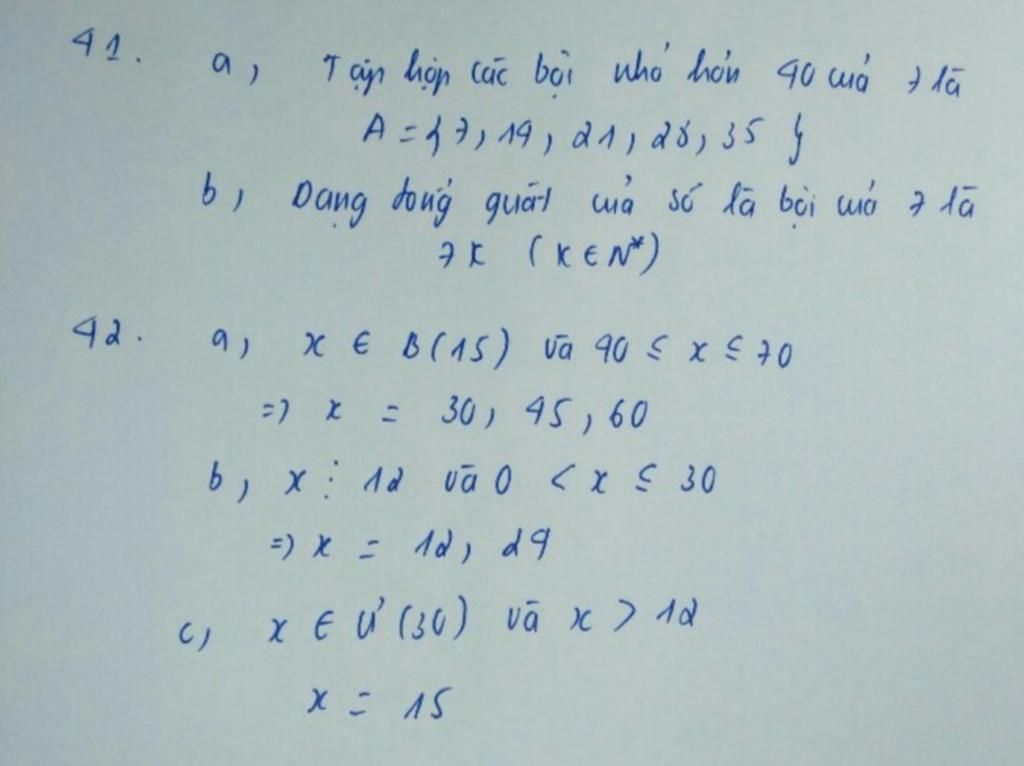 41. a, Tập hợp các bội nhỏ hơn 40 của 7 là
A = {7, 14, 21, 28, 35}
b, Dạng tổng quát của số là bội của 7 là
7K (K ∈ N*)
42. a, x ∈ B(15) và 40 ≤ x ≤ 70
=> x = 30, 45, 60
b, x ⋮ 12 và 0 < x ≤ 30
=> x = 12, 24
c, x ∈ Ư(30) và x > 12
x = 15